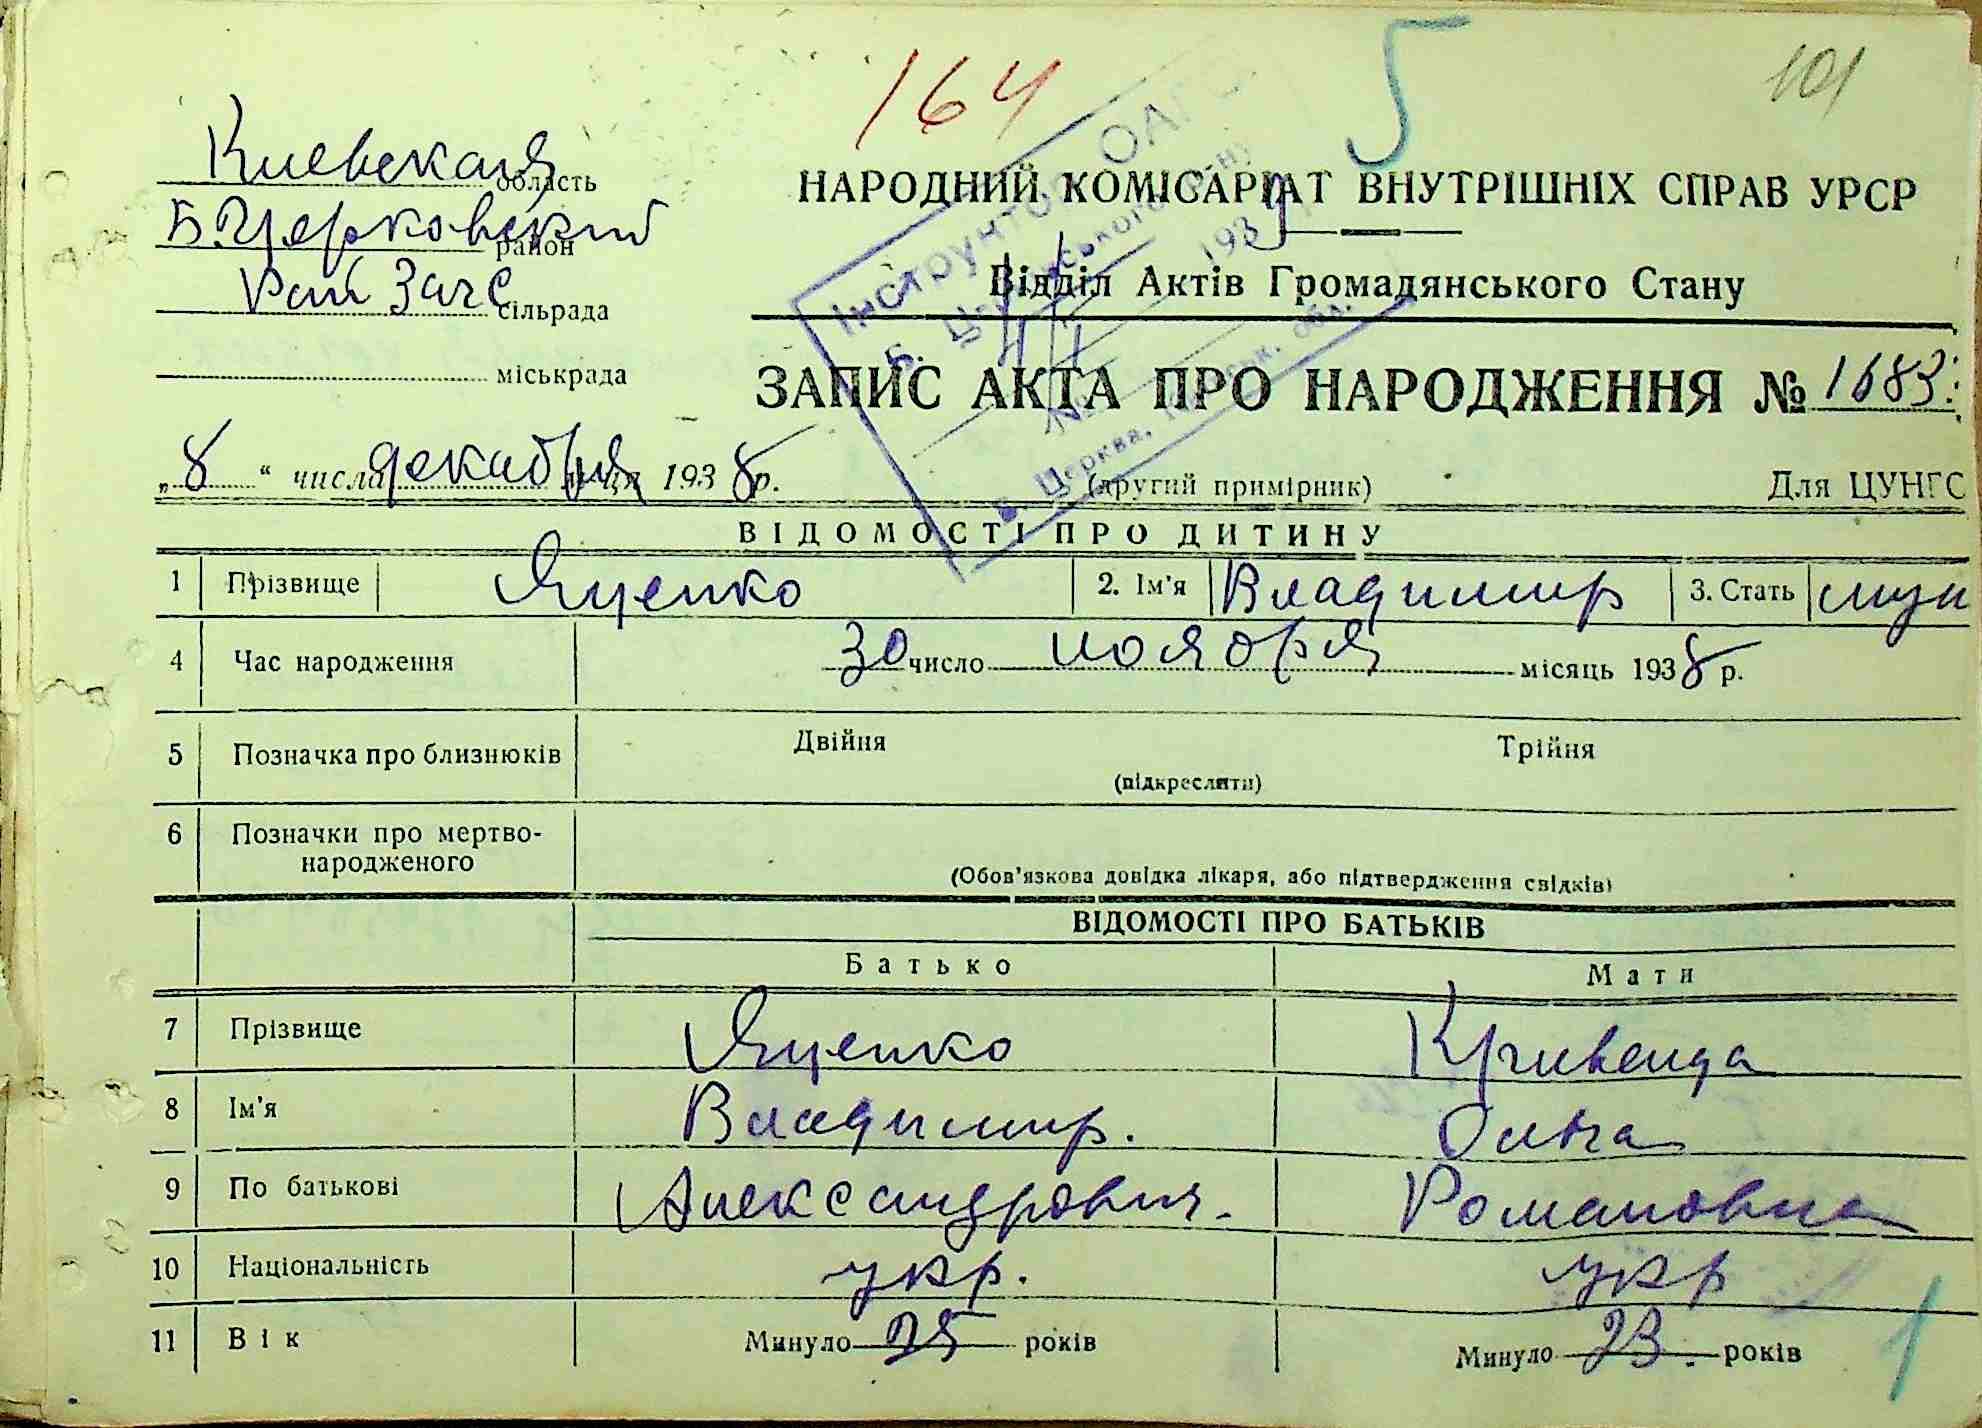 164
5
101
Киевская область
Б.Церковский район
Рай Загс сільрада
міськрада
НАРОДНИЙ КОМІСАРІАТ ВНУТРІШНІХ СПРАВ УРСР
Відділ Актів Громадянського Стану
Інструктор ОАГС
Б. Ц-
193
№
Б. Церква,
обл.
ЗАПИС АКТА ПРО НАРОДЖЕННЯ № 1683
„8“ числа декабря м-ця 1938 р.
(другий примірник)
Для ЦУНГС
ВІДОМОСТІ ПРО ДИТИНУ
1 Прізвище Яценко 2. Ім'я Владимир 3. Стать муж
4 Час народження 30 число ноября місяць 1938 р.
5 Позначка про близнюків Двійня Трійня
(підкреслити)
6 Позначки про мертво-
народженого
(Обов'язкова довідка лікаря, або підтвердження свідків)
ВІДОМОСТІ ПРО БАТЬКІВ
Батько Мати
7 Прізвище Яценко Кривенда
8 Ім'я Владимир. Ольга
9 По батькові Александрович. Романовна
10 Національність укр. укр
11 Вік Минуло 25 років Минуло 23. років
1